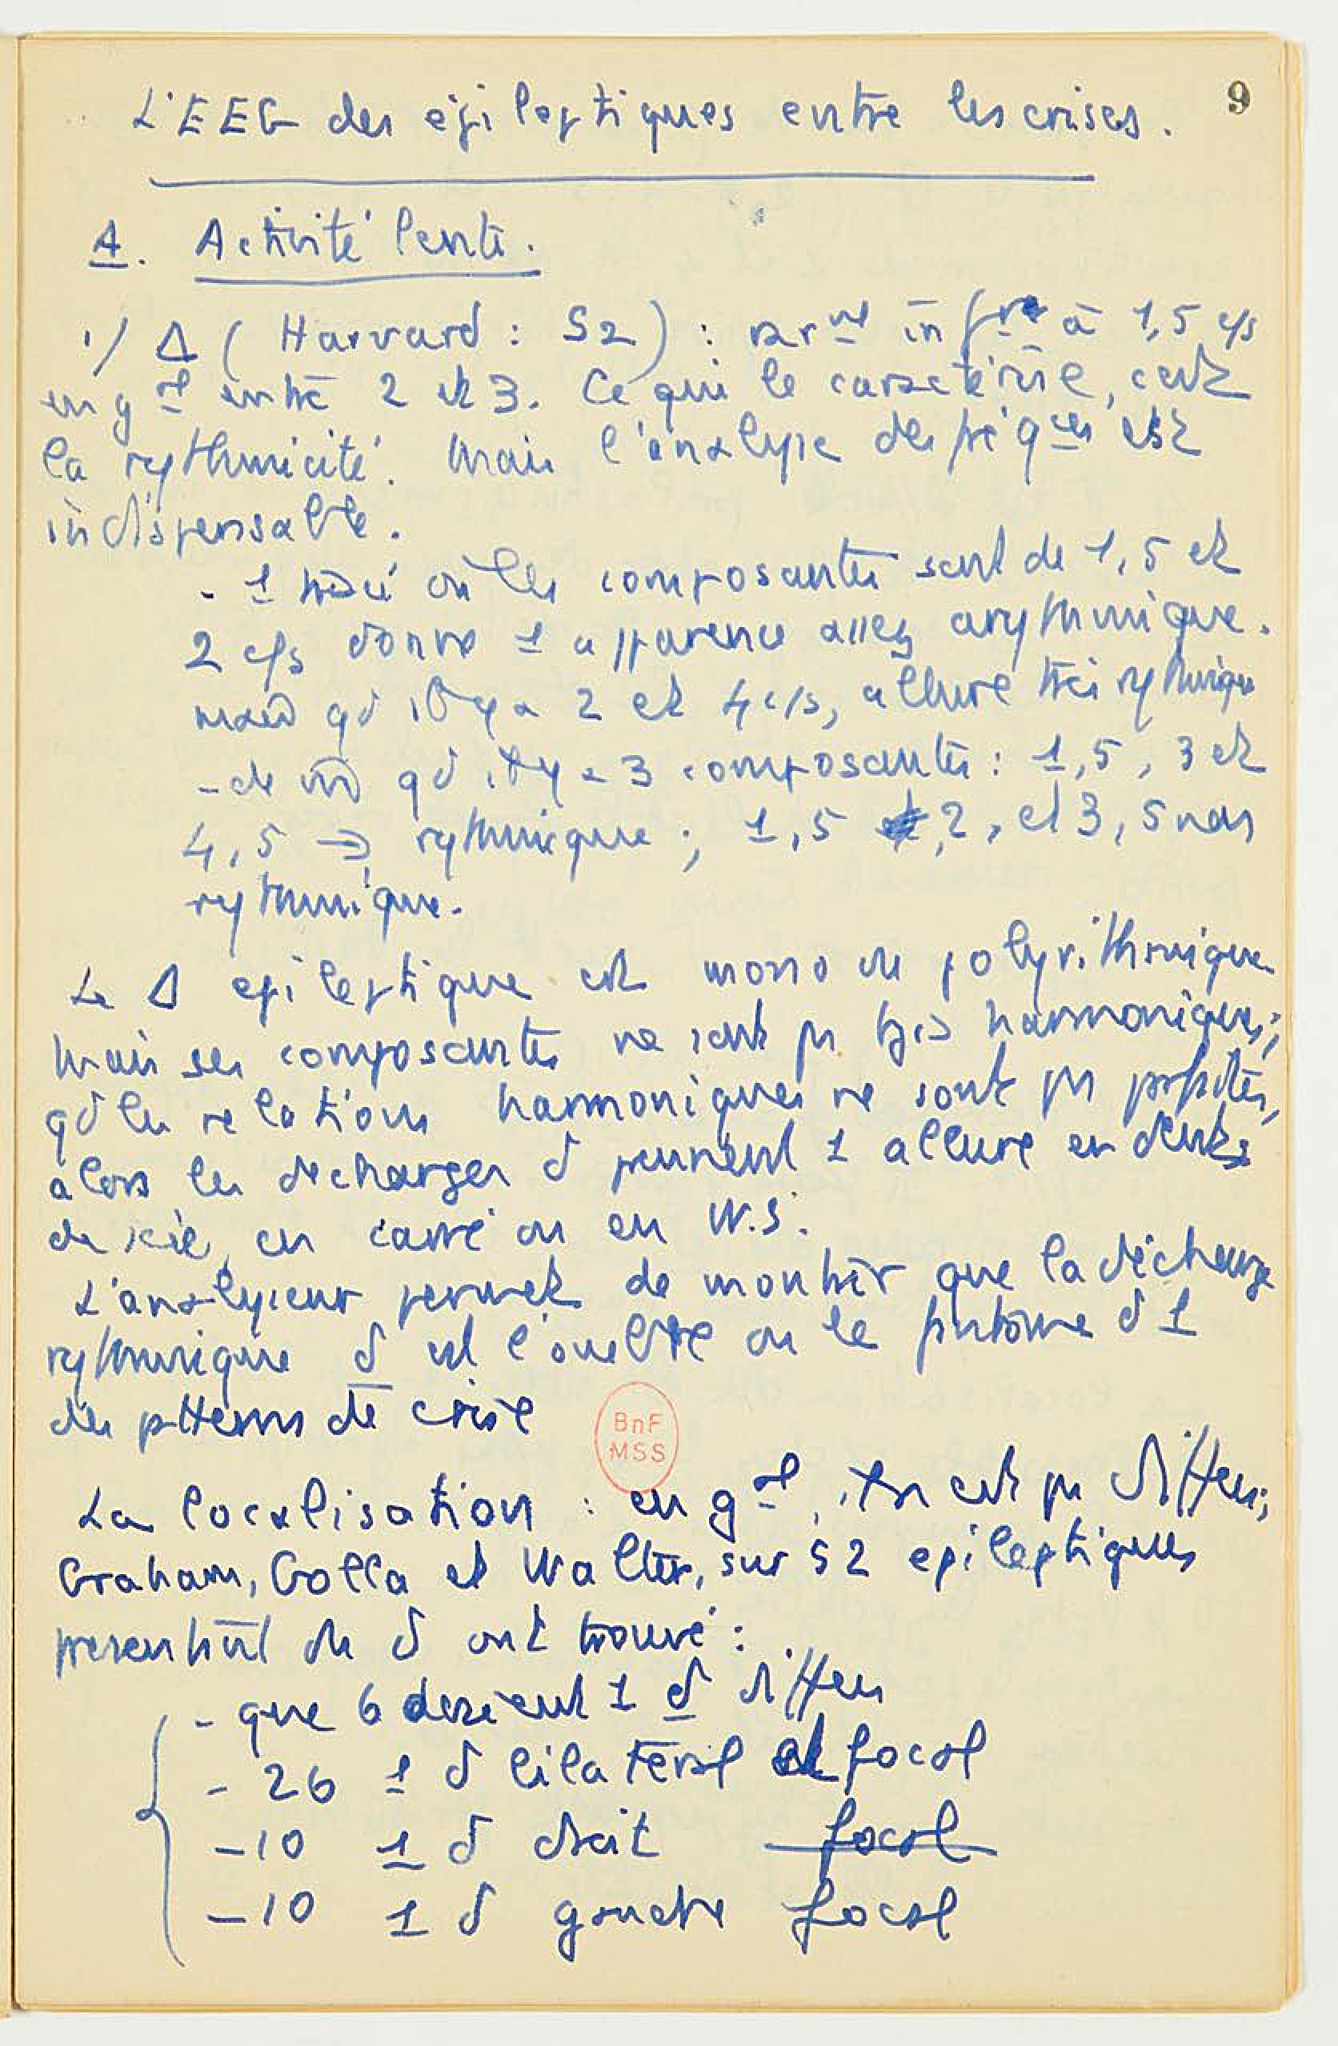 9
L'EEG des épileptiques entre les crises.
A. Activité lente.
1/ Δ (Harvard : S2) : rarnt infre à 1,5 c/s
en gal entre 2 et 3. Ce qui le caractérise, c'est
la rythmicité. Mais l'analyse des fréqces est
indispensable.
- 1 tracé où les composantes sont de 1,5 et
2 c/s donne 1 apparence assez arythmique.
qd il y a 2 et 4 c/s, allure très rythmique
- de m̄ qd il y a 3 composantes : 1,5, 3 et
4,5 → rythmique ; 1,5, 2, et 3,5 non
rythmique.
Le Δ epileptique est mono ou polyrithmique
Mais ses composantes ne sont pas tjs harmoniques;
qd les relations harmoniques ne sont pas
alors les decharges δ prennent 1 allure en dents
de scie, en carré ou en W.S.
L'analyseur permet de montrer que la décharge
rythmique δ est ou le d 1
des patterns de crise
BnF
MSS
La localisation : en gal, il n'est pas diffus;
Graham, Golla et Walter, sur 52 epileptiques
presentant du δ ont trouvé :
- que 6 avaient 1 δ diffus
- 26 1 δ bilateral et focal
- 10 1 δ droit focal
- 10 1 δ gauche focal